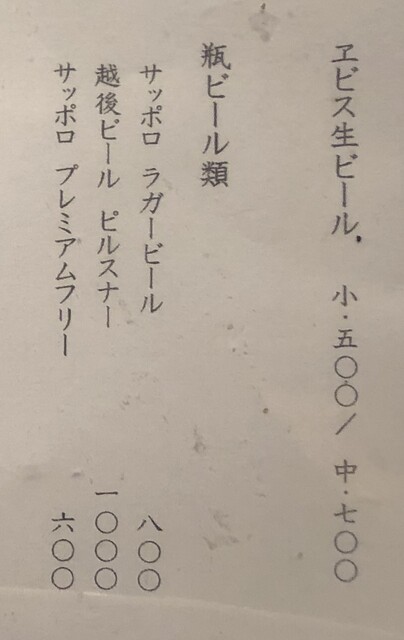 ヱビス生ビール 小・五〇〇/ 中・七〇〇
瓶ビール類
サッポロ ラガービール 八〇〇
越後ビール ピルスナー 一〇〇〇
サッポロ プレミアムフリー 六〇〇